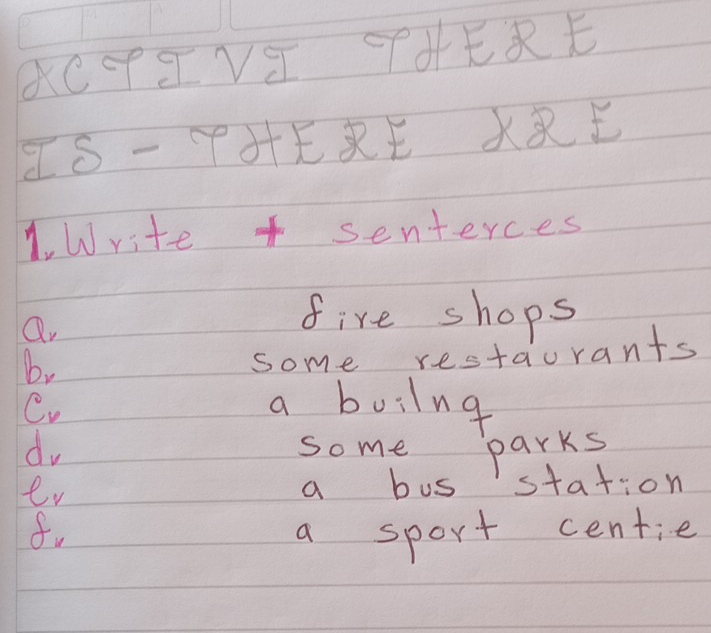 ACTIVI THERE
IS - THERE ARE
1. Write + senterces
a. five shops
b. some restaurants
c. a builng
d. some parks
e. a bus station
f. a sport centie